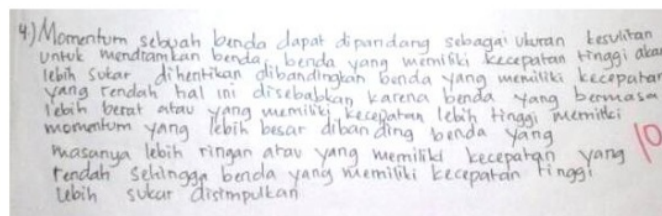 4) Momentum sebuah benda dapat dipandang sebagai ukuran kesulitan
untuk mendiamkan benda, benda yang memiliki kecepatan tinggi akan
lebih sukar dihentikan dibandingkan benda yang memiliki kecepatan
yang rendah hal ini disebabkan karena benda yang bermasa
lebih berat atau yang memiliki kecepatan lebih tinggi memiliki
momentum yang lebih besar dibanding benda yang
masanya lebih ringan atau yang memiliki kecepatan yang
rendah sehingga benda yang memiliki kecepatan tinggi
lebih sukar disimpulkan
10